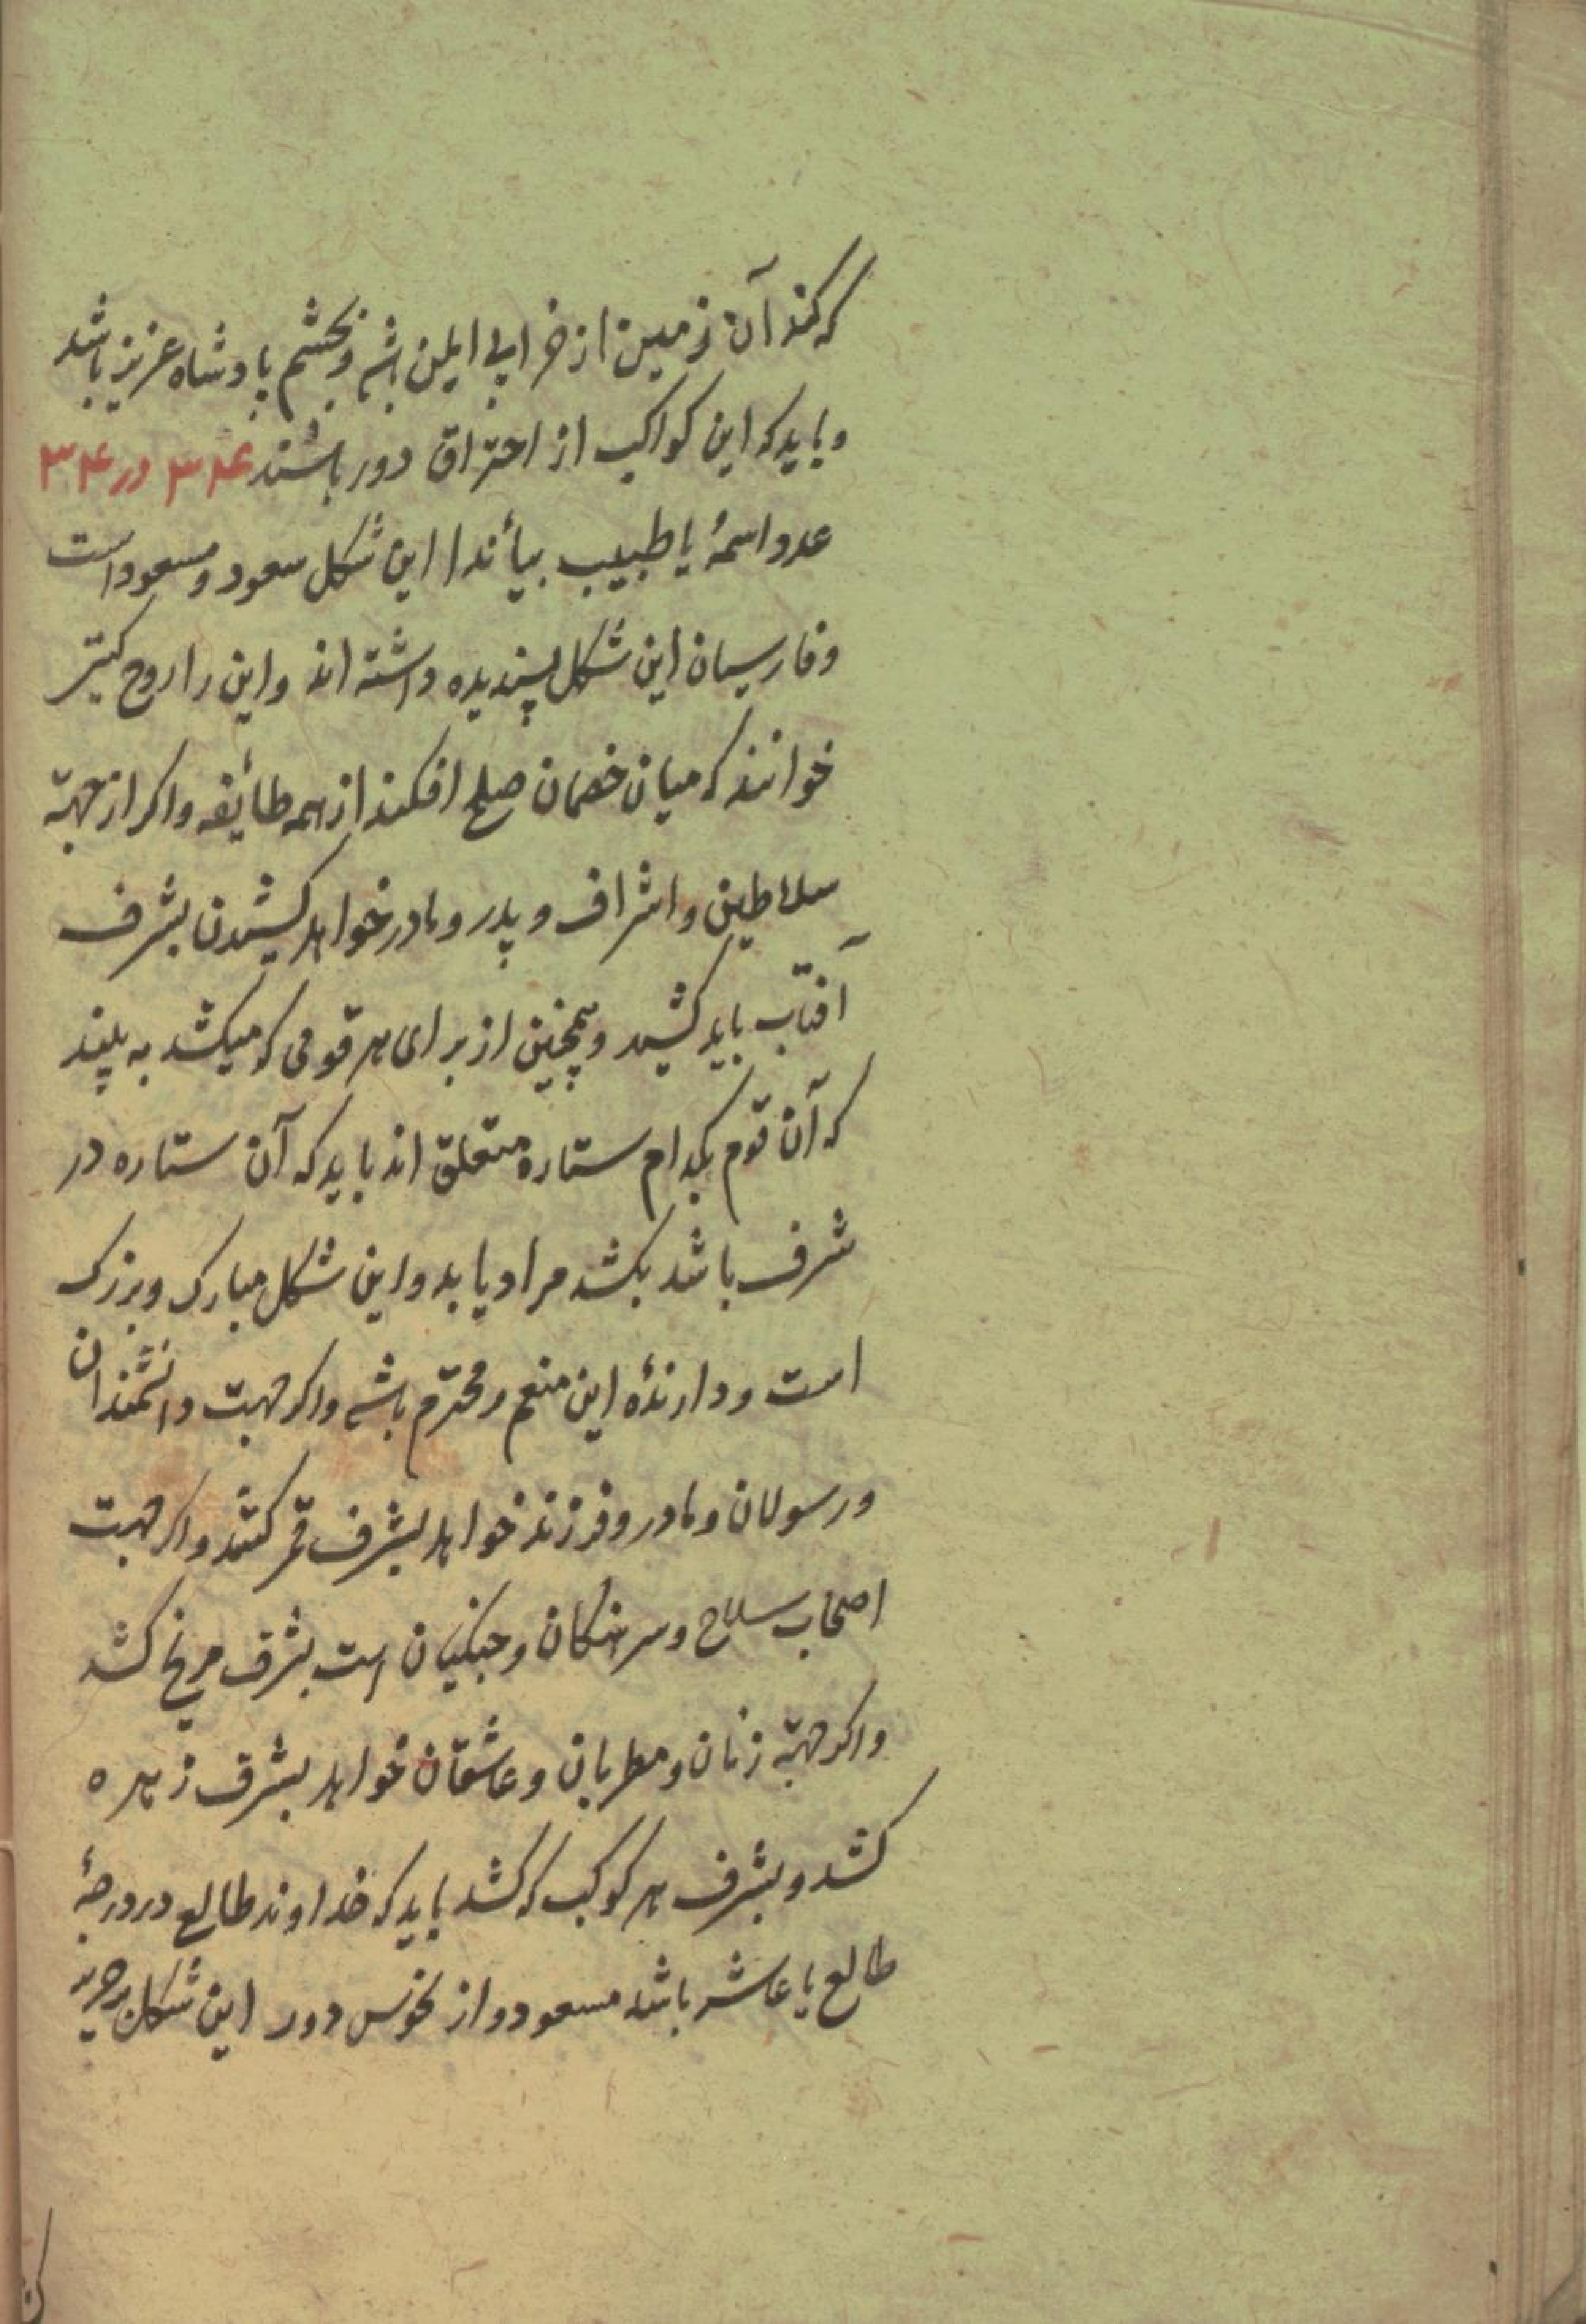 که کند آن زمین از خرابی ایمن باشد و بچشم پادشاه عزیز باشد
و باید که این کواکب از احتراق دور باشند ۳۴ در ۳۴
عدو اسمهٔ یا طبیب بیأندا این شکل سعود و مسعود است
و فارسیان این شکل پسندیده داشته اند و این را روح
خوانند که میان خصمان صلح افکند از همه طائفه و اکر از جهته
سلاطین و اشراف و پدر و مادر خواهد کشیدن بشرف
آفتاب باید کشید و همچنین از برای هر قومی که میکشد به بیند
که آن قوم بکدام ستاره متعلق اند باید که آن ستاره در
شرف باشد بکشد مراد یابد و این شکل مبارک و بزرک
است و دارندهٔ این منعم و محترم باشد و اکر جهت دانشمندان
و رسولان و مادر و فرزند خواهد بشرف قمر کشد و اکر جهت
اصحاب سلاح و سرهنکان و جنکیان است بشرف مریخ کشد
و اکر جهته زنان و مطربان و عاشقان خواهد بشرف زهره
کشد و بشرف هر کوکب که کشد باید که خداوند طالع در درجهٔ
طالع یا عاشر باشد مسعود و از نحوس دور این شکل